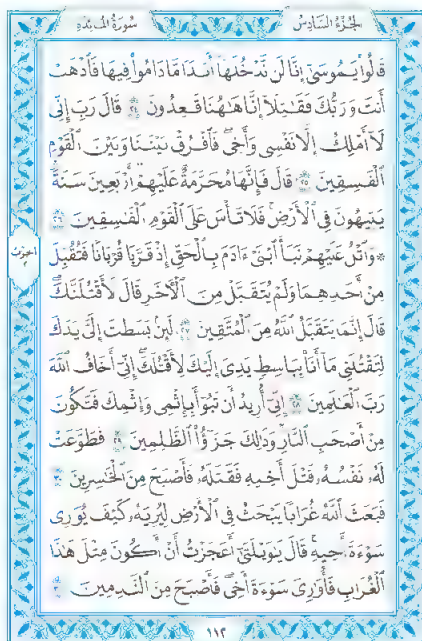 الجُزْءُ السَّادِسُ سُورَةُ المَائِدَةِ
قَالُوا۟ يَٰمُوسَىٰٓ إِنَّا لَن نَّدْخُلَهَآ أَبَدًا مَّا دَامُوا۟ فِيهَا فَٱذْهَبْ
أَنتَ وَرَبُّكَ فَقَٰتِلَآ إِنَّا هَٰهُنَا قَٰعِدُونَ ٢٤ قَالَ رَبِّ إِنِّى
لَآ أَمْلِكُ إِلَّا نَفْسِى وَأَخِى فَٱفْرُقْ بَيْنَنَا وَبَيْنَ ٱلْقَوْمِ
ٱلْفَٰسِقِينَ ٢٥ قَالَ فَإِنَّهَا مُحَرَّمَةٌ عَلَيْهِمْ أَرْبَعِينَ سَنَةً
يَتِيهُونَ فِى ٱلْأَرْضِ فَلَا تَأْسَ عَلَى ٱلْقَوْمِ ٱلْفَٰسِقِينَ ٢٦
۞ وَٱتْلُ عَلَيْهِمْ نَبَأَ ٱبْنَىْ ءَادَمَ بِٱلْحَقِّ إِذْ قَرَّبَا قُرْبَانًا فَتُقُبِّلَ
مِنْ أَحَدِهِمَا وَلَمْ يُتَقَبَّلْ مِنَ ٱلْأَخَرِ قَالَ لَأَقْتُلَنَّكَ
قَالَ إِنَّمَا يَتَقَبَّلُ ٱللَّهُ مِنَ ٱلْمُتَّقِينَ ٢٧ لَئِنۢ بَسَطتَ إِلَىَّ يَدَكَ
لِتَقْتُلَنِى مَآ أَنَا۠ بِبَاسِطٍ يَدِىَ إِلَيْكَ لِأَقْتُلَكَ إِنِّىٓ أَخَافُ ٱللَّهَ
رَبَّ ٱلْعَٰلَمِينَ ٢٨ إِنِّىٓ أُرِيدُ أَن تَبُوٓأَ بِإِثْمِى وَإِثْمِكَ فَتَكُونَ
مِنْ أَصْحَٰبِ ٱلنَّارِ وَذَٰلِكَ جَزَٰٓؤُا۟ ٱلظَّٰلِمِينَ ٢٩ فَطَوَّعَتْ
لَهُۥ نَفْسُهُۥ قَتْلَ أَخِيهِ فَقَتَلَهُۥ فَأَصْبَحَ مِنَ ٱلْخَٰسِرِينَ ٣٠
فَبَعَثَ ٱللَّهُ غُرَابًا يَبْحَثُ فِى ٱلْأَرْضِ لِيُرِيَهُۥ كَيْفَ يُوَٰرِى
سَوْءَةَ أَخِيهِ قَالَ يَٰوَيْلَتَىٰٓ أَعَجَزْتُ أَنْ أَكُونَ مِثْلَ هَٰذَا
ٱلْغُرَابِ فَأُوَٰرِىَ سَوْءَةَ أَخِى فَأَصْبَحَ مِنَ ٱلنَّٰدِمِينَ ٣١
١١٢